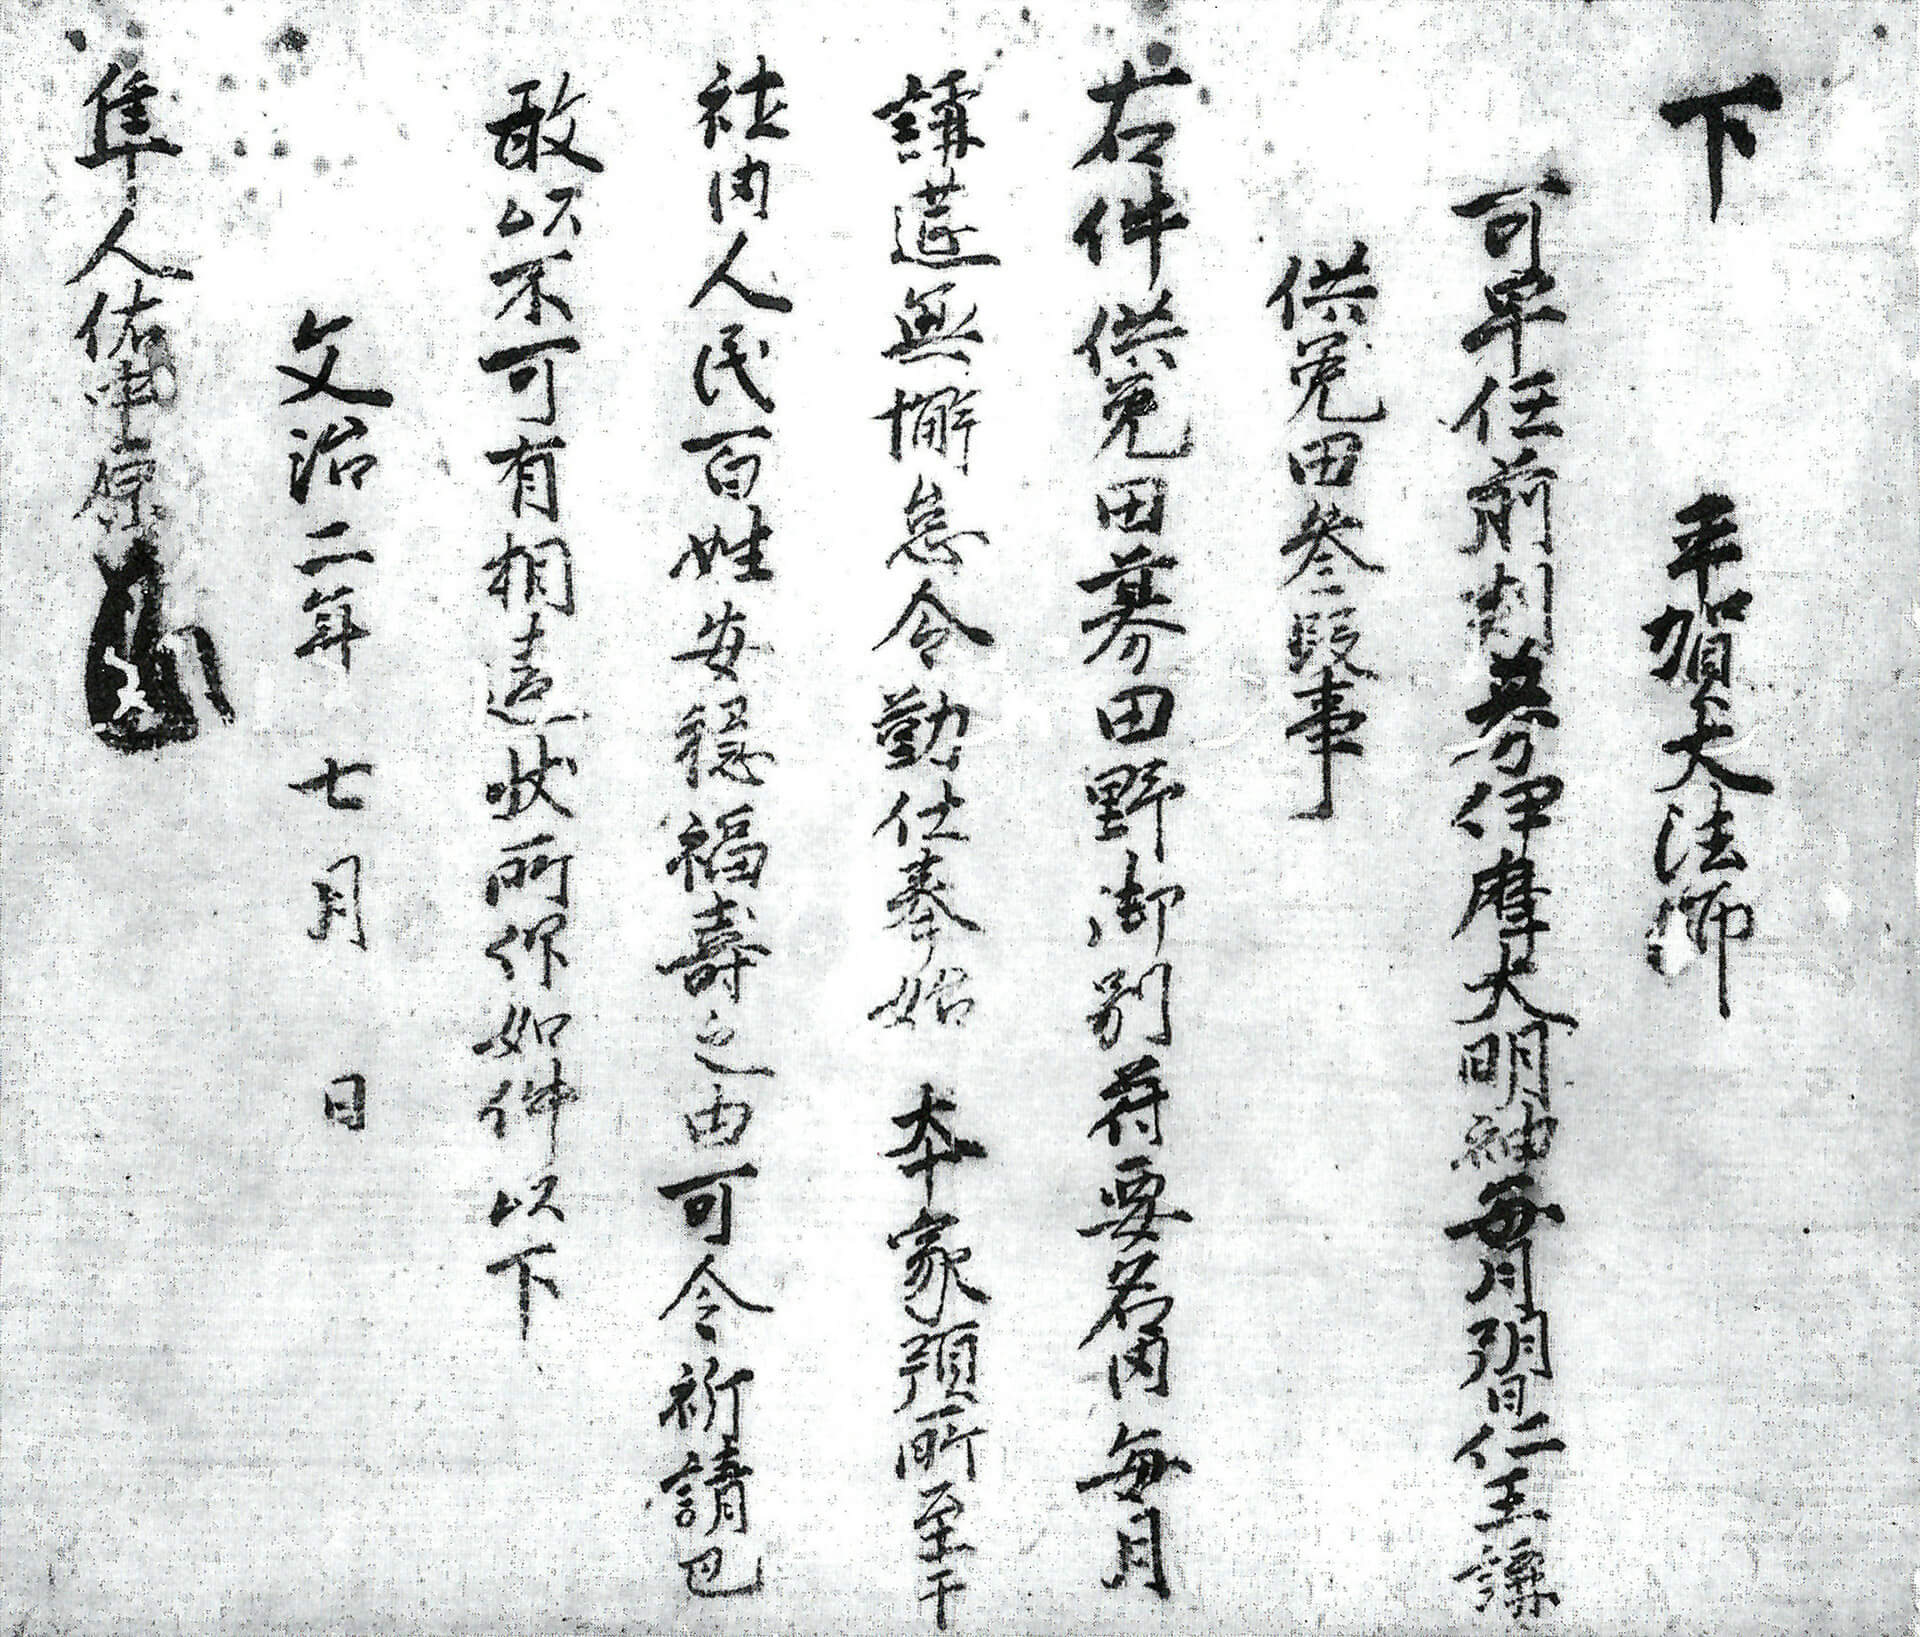 下 平賀大法師
可早任前判募伊摩大明神毎月朔日仁王講
供免田参段事
右件供免田募田野御別符要名内毎月
講莚無懈怠令勤仕奉始 本家預所至干
社内人民百姓安穏福寿之由可令祈請也
敢以不可有相違之状所仰如件以下
文治二年七月 日
隼人佑中原